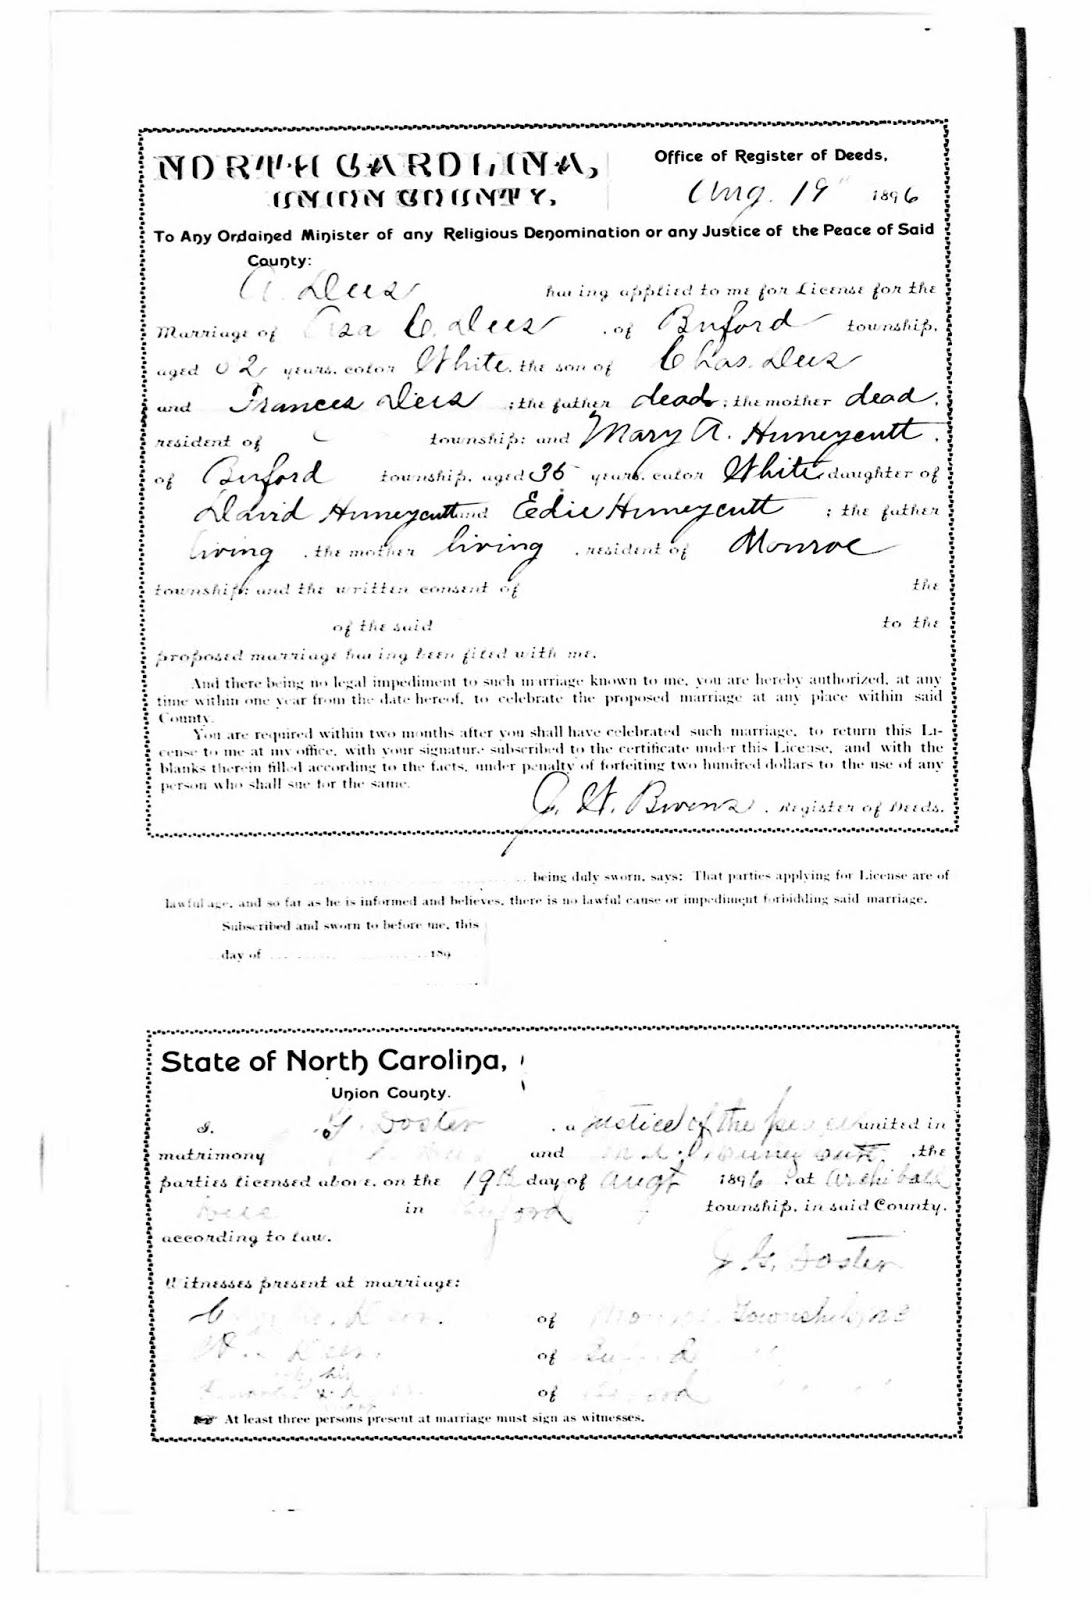 NORTH CAROLINA,
UNION COUNTY.
Office of Register of Deeds,
Aug. 19" 1896
To Any Ordained Minister of any Religious Denomination or any Justice of the Peace of Said
County:
A. Dees having applied to me for License for the
Marriage of Asa C. Dees , of Buford township,
aged 2 years, color White, the son of Chas. Dees
and Frances Dees ; the father dead ; the mother dead,
resident of township: and Mary A. Huneycutt ,
of Buford township, aged 35 years, color White, daughter of
David Huneycutt and Edie Huneycutt ; the father
living , the mother living , resident of Monroe
township: and the written consent of the
of the said to the
proposed marriage having been filed with me.
And there being no legal impediment to such marriage known to me, you are hereby authorized, at any
time within one year from the date hereof, to celebrate the proposed marriage at any place within said
County.
You are required within two months after you shall have celebrated such marriage, to return this Li-
cense to me at my office, with your signature subscribed to the certificate under this License, and with the
blanks therein filled according to the facts, under penalty of forfeiting two hundred dollars to the use of any
person who shall sue for the same.
J. W. Bivens , Register of Deeds.
being duly sworn, says: That parties applying for License are of
lawful age, and so far as he is informed and believes, there is no lawful cause or impediment forbidding said marriage.
Subscribed and sworn to before me, this
day of 189
State of North Carolina,
Union County.
I, G. Doster , a Justice of the peace united in
matrimony and , the
parties licensed above, on the 19th day of Augt 1896 , at Archibald
Dees in Buford township, in said County,
according to law.
J. G. Doster
Witnesses present at marriage:
of Monroe Township, NC
of Buford
of Buford
At least three persons present at marriage must sign as witnesses.